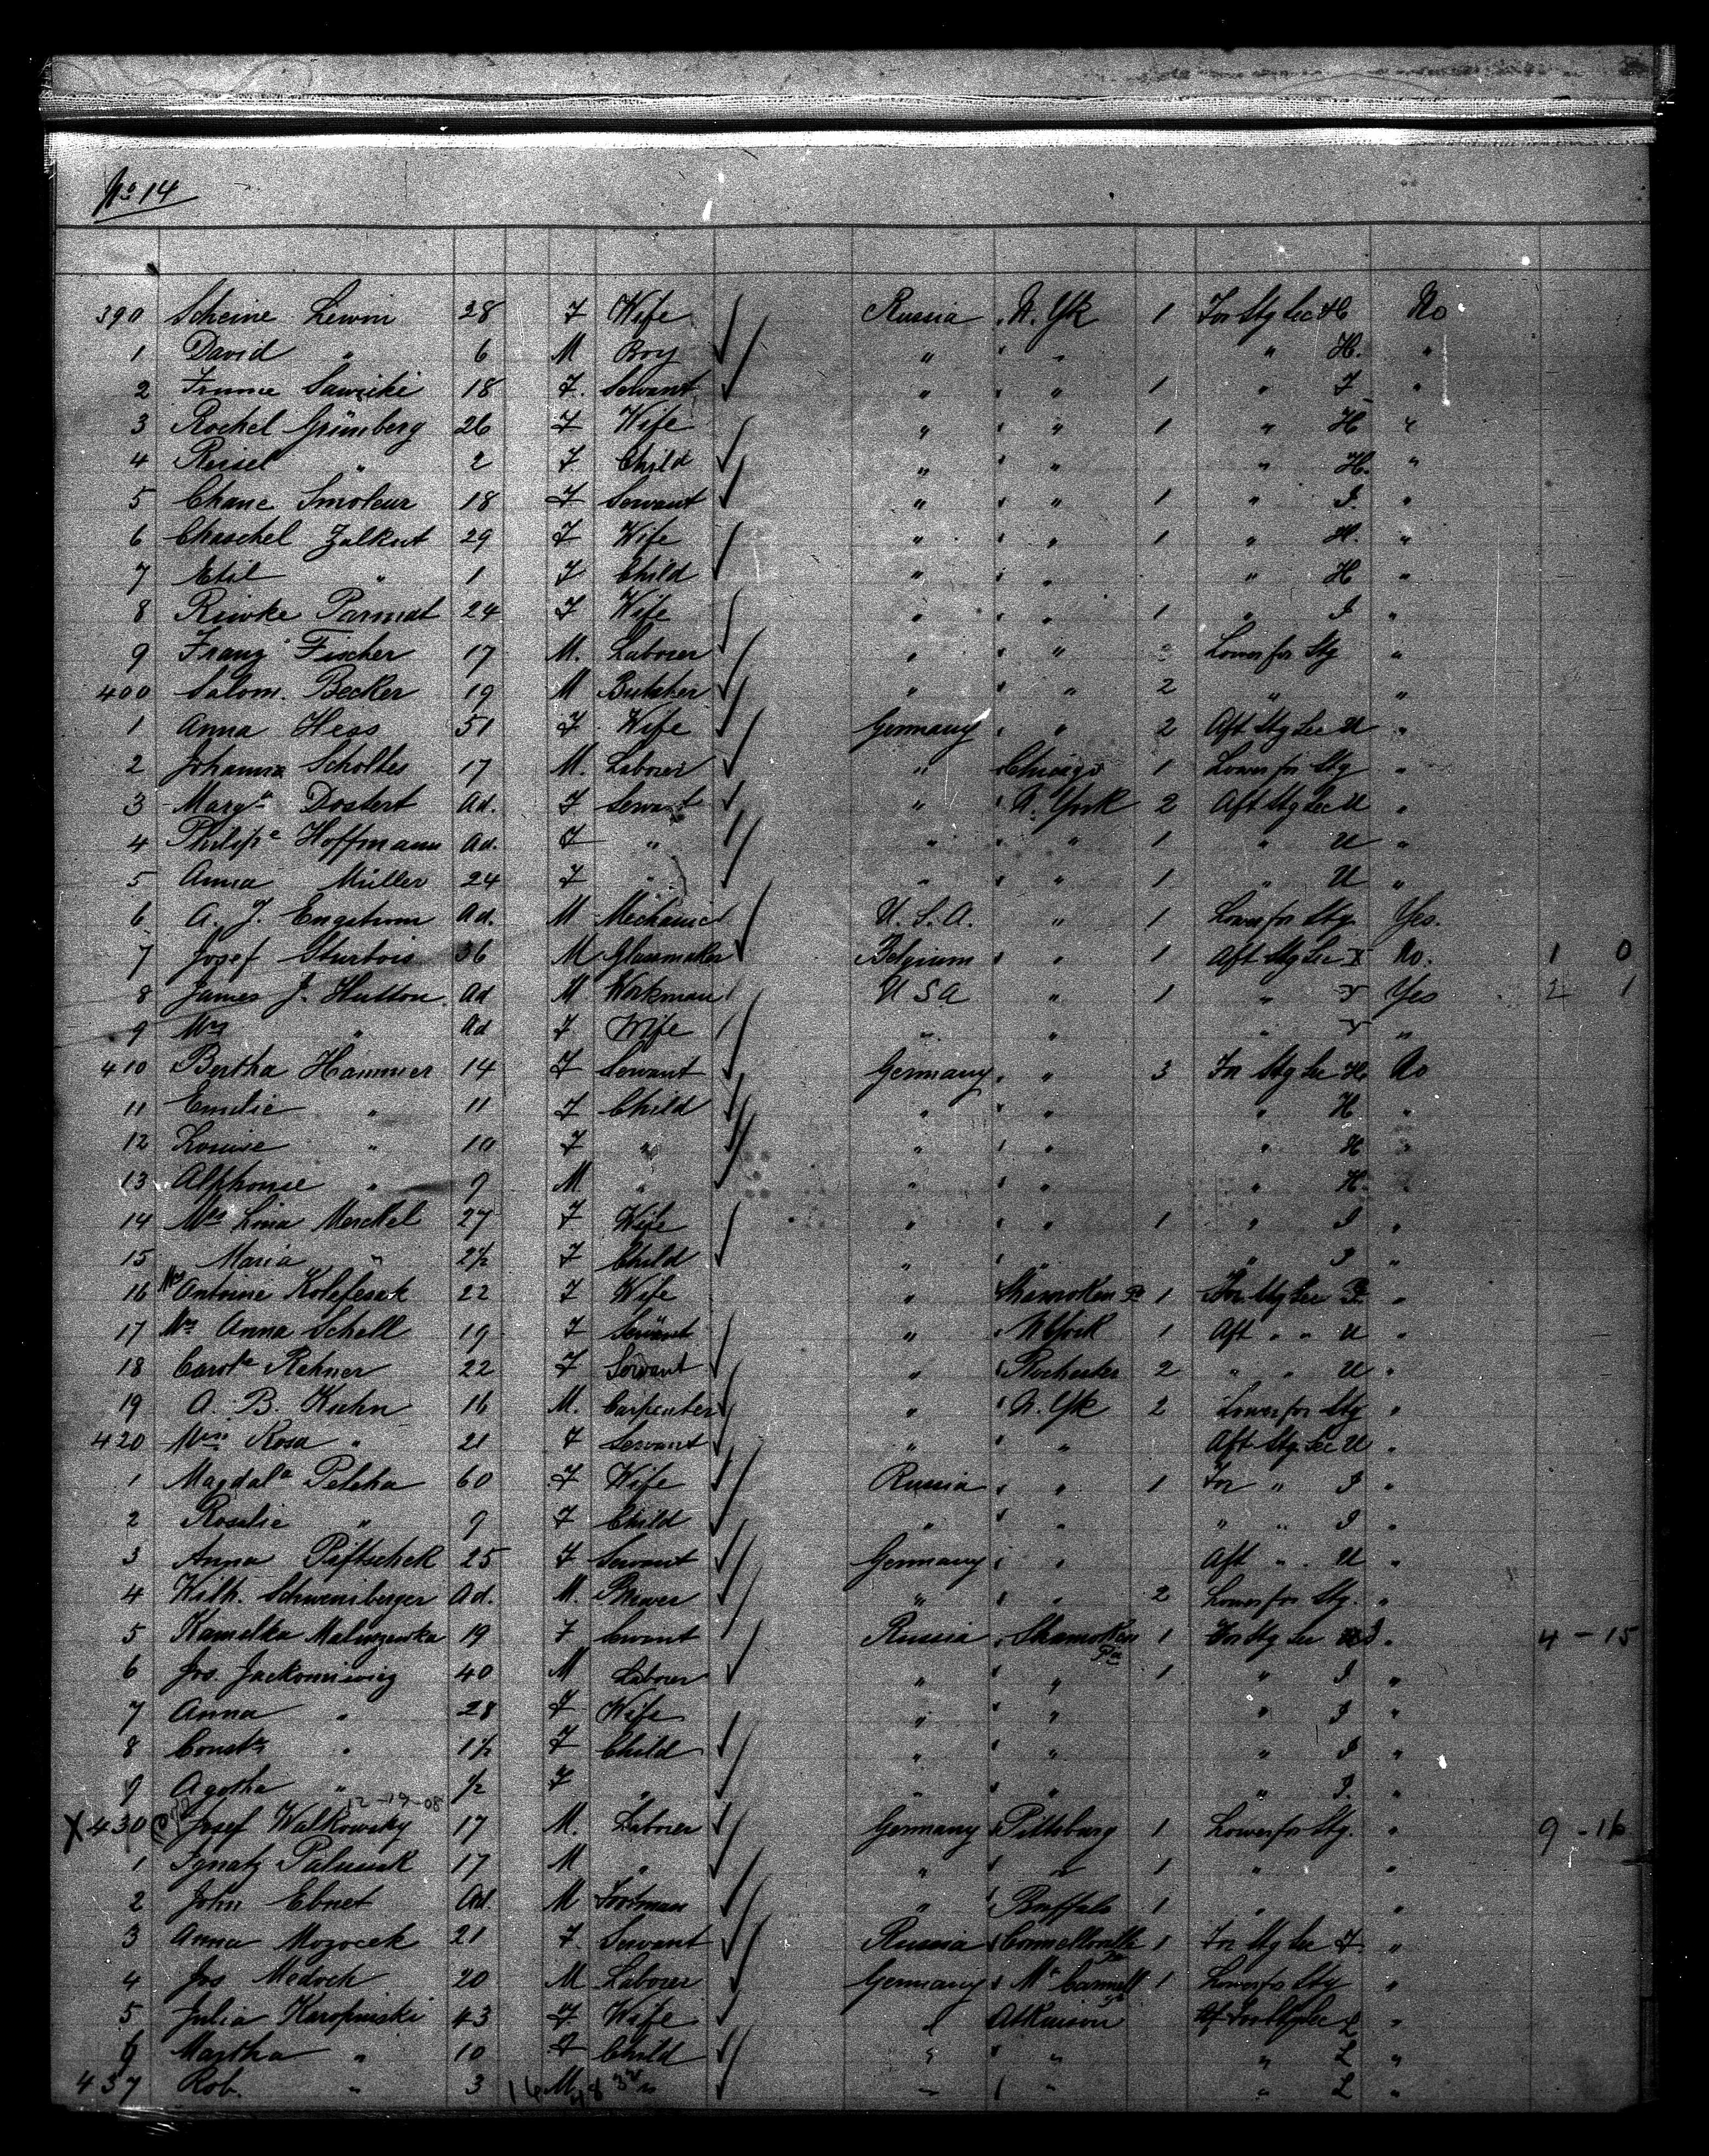 No 14
390 Scheine Lewin 28 F Wife Russia N. Yk 1 For Stg Sec H No
1 David " 6 M Boy " " " H. "
2 Frume Sawicki 18 F. Servant " " 1 " F "
3 Rochel Grünberg 26 F Wife " " 1 " H "
4 Reisel " 2 F Child " " " H. "
5 Chane Smoleur 18 F Servant " " 1 " I. "
6 Chaschel Zalkut 29 F Wife " " 1 " H. "
7 Etil " 1 F Child " " " H "
8 Riwke Parmat 24 F Wife " " 1 " I "
9 Franz Fischer 17 M. Laborer " " Lower for Stg "
400 Salom. Becker 19 M Butcher " " 2 " "
1 Anna Hess 51 F. Wife Germany " 2 Aft Stg Sec U "
2 Johann Scholtes 17 M. Laborer " Chicago 1 Lower for Stg "
3 Marga Dostert Ad. F Servant " N. York 2 Aft Stg Sec U "
4 Philipe Hoffmann Ad. F " " " 1 " U "
5 Anna Müller 24 F " " " 1 " U "
6 A. J. Engstrom Ad. M Mechanic U. S. A. " 1 Lower for Stg Yes.
7 Josef Sturbois 36 M Glassmaker Belgium " 1 Aft Stg Sec No. 1 0
8 James J. Hutton Ad M Workman U S A " 1 " Yes 2 1
9 Mrs " Ad F Wife " " " "
410 Bertha Hammer 14 F Servant Germany " 3 For Stg Sec H No
11 Emilie " 11 F Child " " " H "
12 Louise " 10 F " " " " H "
13 Alphonse " 9 M " " " " H "
14 Mrs Lina Merckel 27 F Wife " " 1 " I "
15 Maria " 2½ F Child " " " I "
16 Mrs Antoine 22 F Wife " Shamokin Pa 1 For Stg Sec "
17 Mrs Anna Schell 19 F Servant " N York 1 Aft " " U "
18 Carola Rehner 22 F Servant " Rochester 2 " " U "
19 A. B. Kuhn 16 M. Carpenter " N. Yk 2 Lower for Stg "
420 Miss Rosa " 21 F Servant " " Aft Stg Sec U "
1 Magdala Petcha 60 F Wife Russia " 1 For " I "
2 Rosalie " 9 F Child " " " " I "
3 Anna Piftschek 25 F Servant Germany " Aft " " U "
4 Wilh. Schweriberger Ad. M. Brewer " " 2 Lower for Stg. "
5 Kamelka Maluszewka 19 F Servant Russia Shamokin Pa 1 For Stg Sec I " 4 - 15
6 Jos. Jackomiwicz 40 M Laborer " " 1 " I "
7 Anna " 28 F Wife " " " I "
8 Consta " 1½ F Child " " " I "
9 Agotha " ½ F " " " " I. "
12-19-08
X 430 Josef Walkowsky 17 M. Laborer Germany Pittsburg 1 Lower for Stg. " 9 - 16
1 Ignatz Palusiak 17 M " " " 1 " "
2 John Ebnet Ad. M Footman " Buffalo 1 " "
3 Anna Mozocek 21 F. Servant Russia Connellsville Pa 1 For Stg Sec F "
4 Jos Medoch 20 M Laborer Germany 1 Lower for Stg "
5 Julia Karopinski 43 F Wife " Atkinson For Stg Sec L "
6 Martha " 10 F Child " " " L "
437 Rob. " 3 M " " " " L "